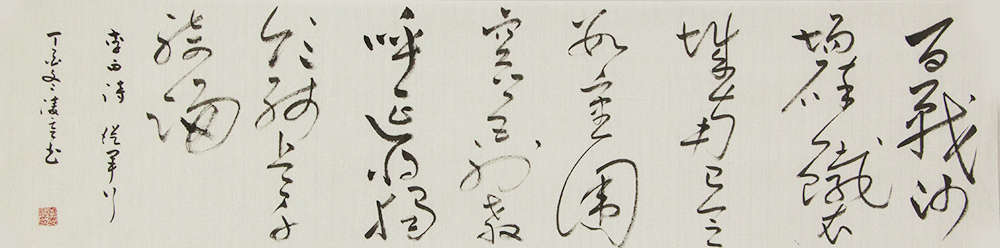 百戰沙
場碎鐵衣
城南已合
數重圍
突營射殺
呼延将獨
領殘兵千
騎歸
李白詩 從軍行
丁亥冬凌